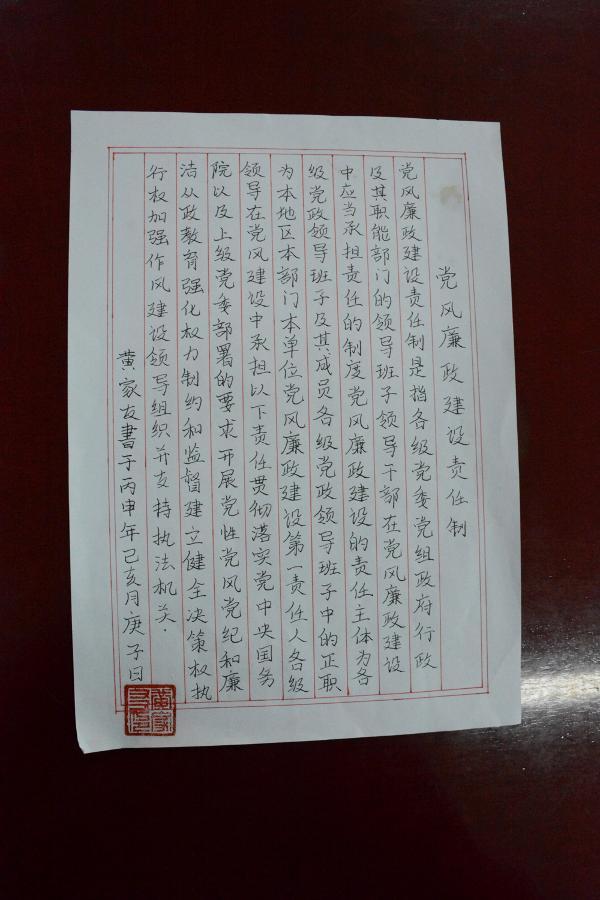 党风廉政建设责任制
党风廉政建设责任制是指各级党委党组政府行政
及其职能部门的领导班子领导干部在党风廉政建设
中应当承担责任的制度党风廉政建设的责任主体为各
级党政领导班子及其成员各级党政领导班子中的正职
为本地区本部门本单位党风廉政建设第一责任人各级
领导在党风建设中承担以下责任贯彻落实党中央国务
院以及上级党委部署的要求开展党性党风党纪和廉
洁从政教育强化权力制约和监督建立健全决策权执
行权加强作风建设领导组织并支持执法机关.
黄家友書于丙申年己亥月庚子日